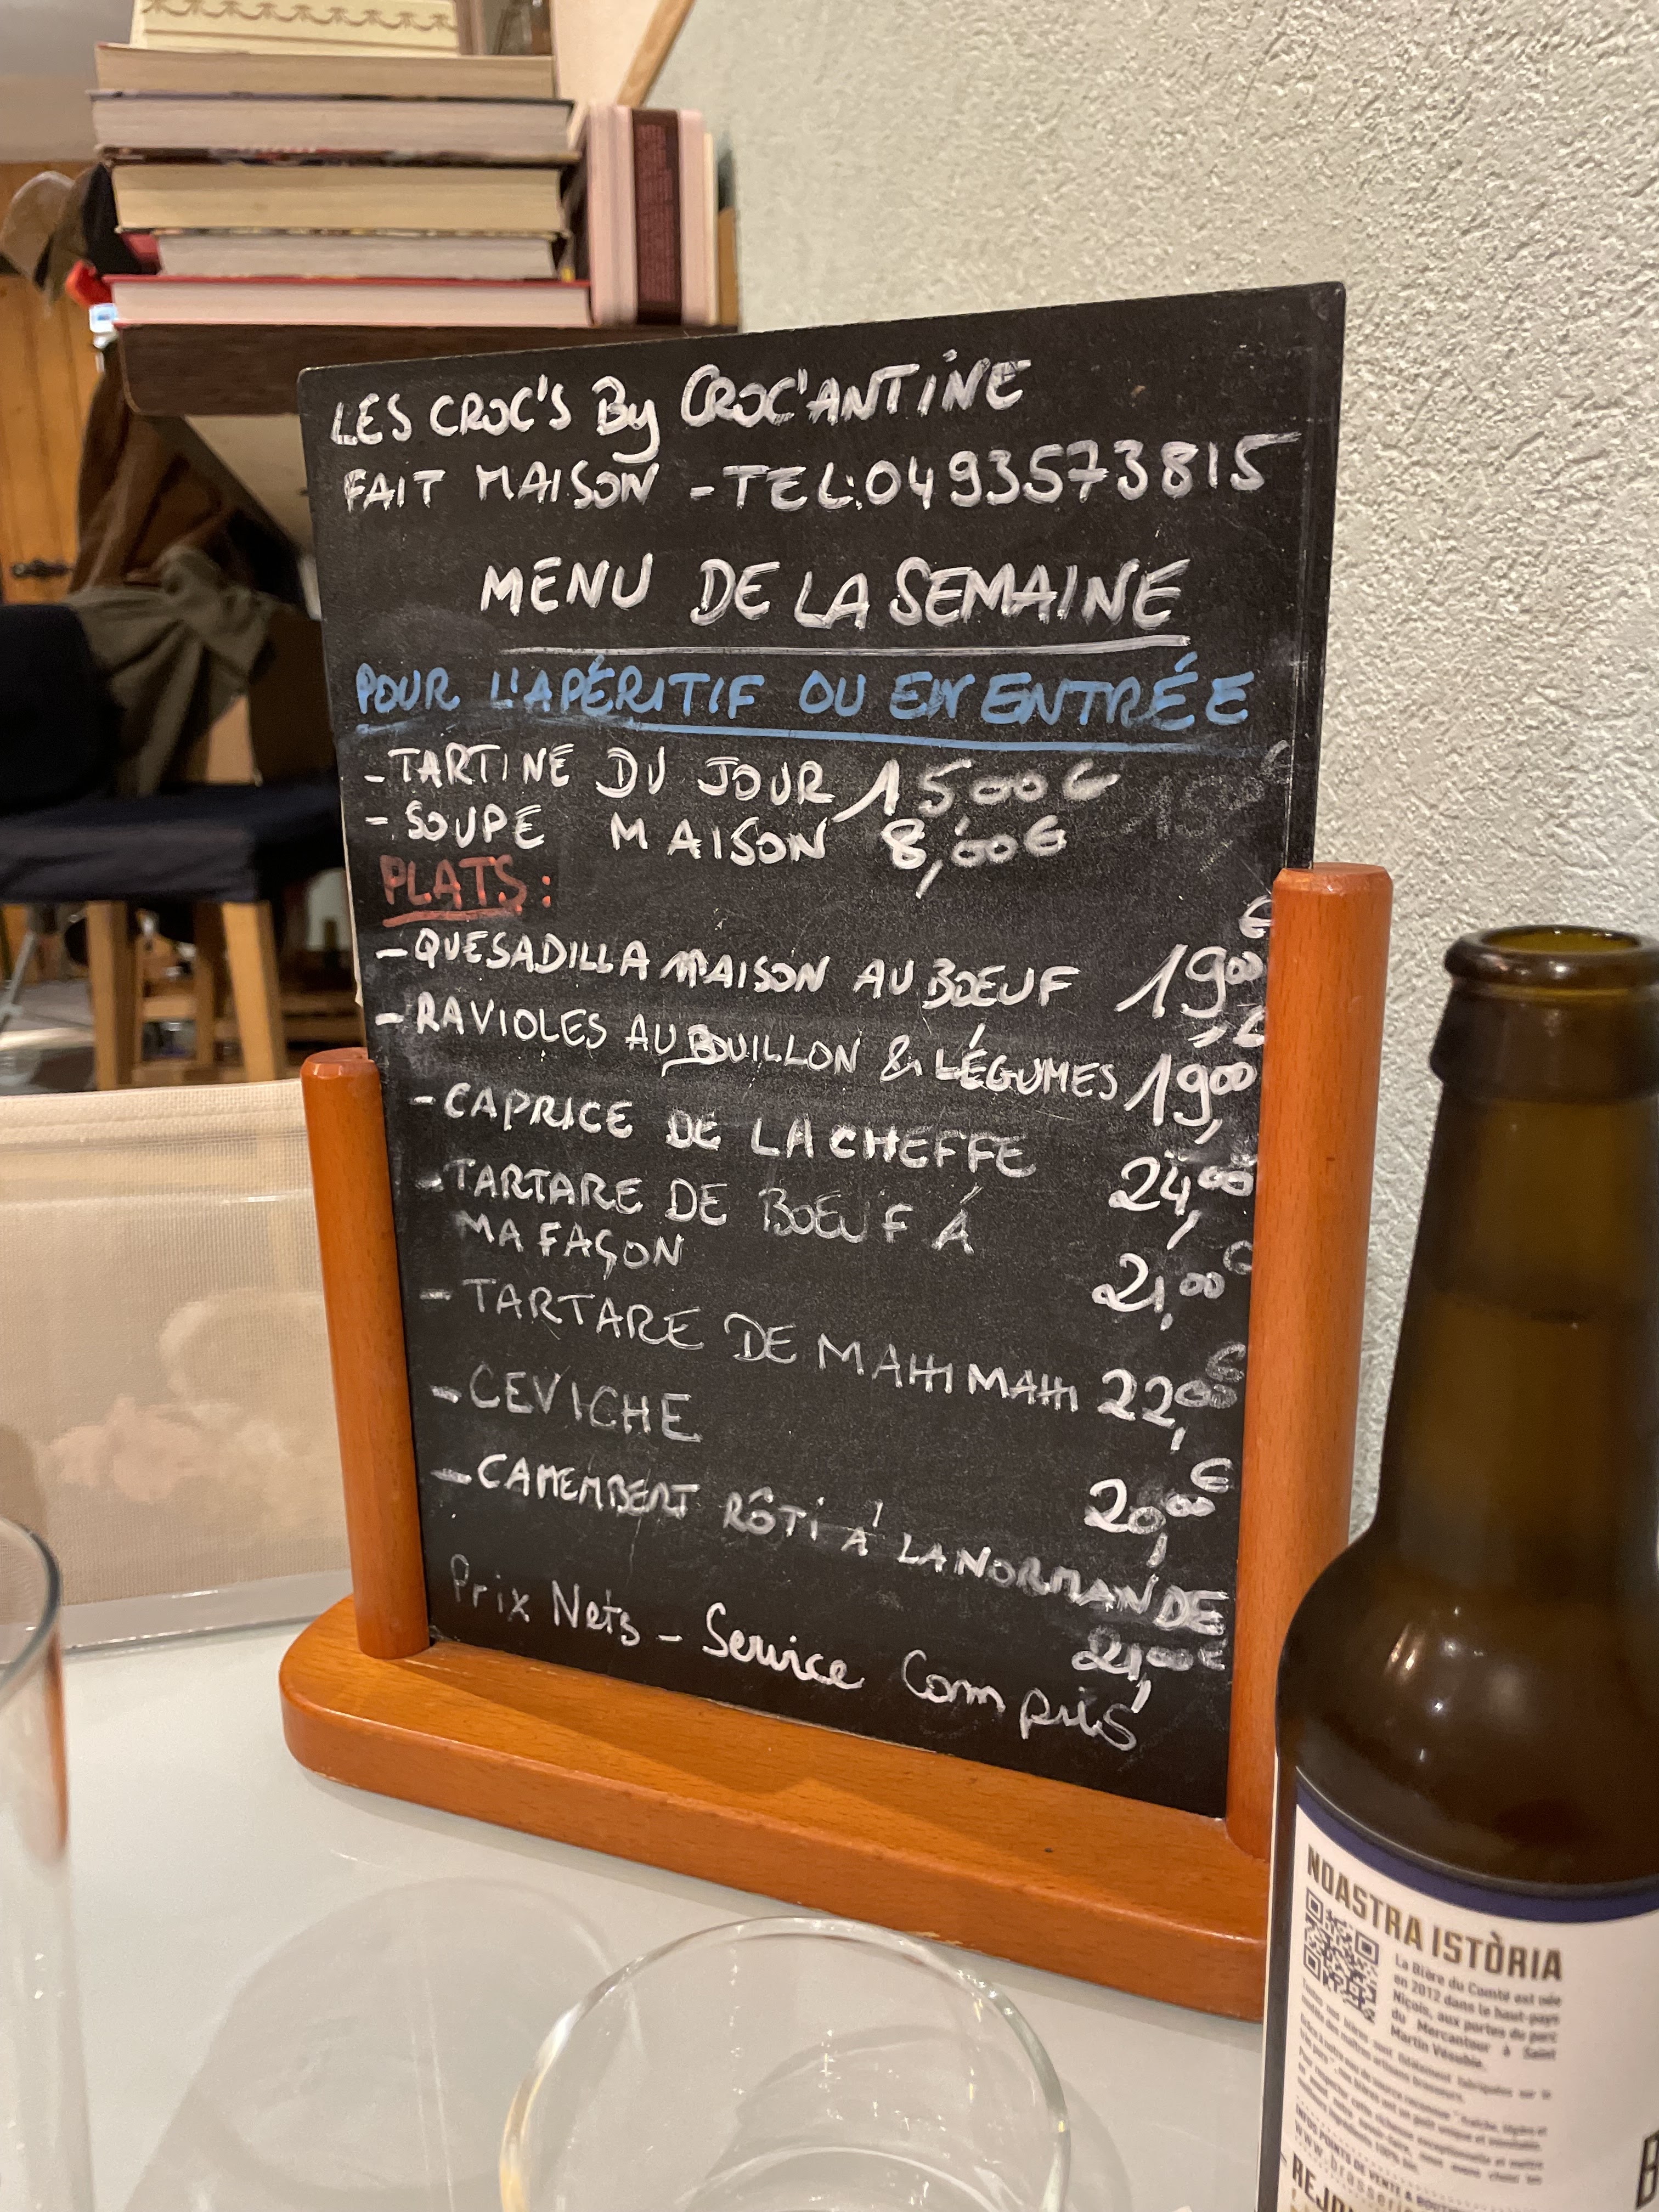 LES CROC'S By CROC'ANTINE
FAIT MAISON - TEL:0493573815
MENU DE LA SEMAINE
POUR L'APÉRITIF OU EN ENTRÉE
- TARTINE DU JOUR 1500€
- SOUPE MAISON 8,00€
PLATS:
- QUESADILLA MAISON AU BOEUF 19,00€
- RAVIOLES AU BOUILLON & LÉGUMES 19,00
- CAPRICE DE LA CHEFFE 24,00
- TARTARE DE BOEUF À
MA FAÇON 21,00€
- TARTARE DE MAHI MAHI 22,00€
- CEVICHE 20,00€
- CAMEMBERT RÔTI À LA NORMANDE
21,00€
Prix Nets - Service Compris
NOASTRA ISTÒRIA
La Bière du Comté est née
en 2012 dans le haut-pays
Niçois, aux portes du parc
du Mercantour à Saint
Martin Vésubie.